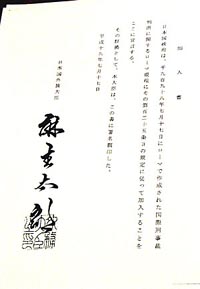 加入書
日本国政府は、千九百九十八年七月十七日にローマで作成された国際刑事裁
判所に関するローマ規程にその第百二十五条３の規定に従って加入することを
ここに宣言する。
その証拠として、本大臣は、この書に署名調印した。
平成十九年七月十七日
日本国外務大臣
麻生太郎